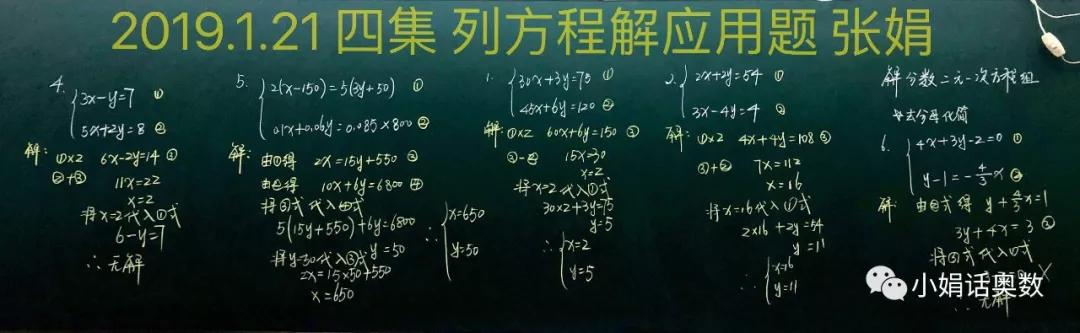 2019.1.21 四集 列方程解应用题 张娟
4.
3x-y=7 ①
5x+2y=8 ②
解: ①×2 6x-2y=14 ③
②+③ 11x=22
x=2
将x=2代入①式
6-y=7
∴无解
5.
2(x-150)=5(3y+50) ①
0.1x+0.06y=0.085×800 ②
解: 由①得 2x=15y+550 ③
由②得 10x+6y=6800 ④
将③式代入④式
5(15y+550)+6y=6800
y=50
将y=50代入③
2x=15×50+550
x=650
∴ x=650
y=50
1.
30x+3y=75 ①
45x+6y=120 ②
解: ①×2 60x+6y=150 ③
③-② 15x=30
x=2
将x=2代入①式
30×2+3y=75
y=5
∴ x=2
y=5
2.
2x+2y=54 ①
3x-4y=4 ②
解: ①×2 4x+4y=108 ③
③+② 7x=112
x=16
将x=16代入①式
2×16+2y=54
y=11
∴ x=16
y=11
解分数二元一次方程组
去分母化简
6.
4x+3y-2=0 ①
y-1=-4/3x ②
解: 由②式得 y+4/3x=1
3y+4x=3 ③
将③式代入①式
无解
小娟话奥数